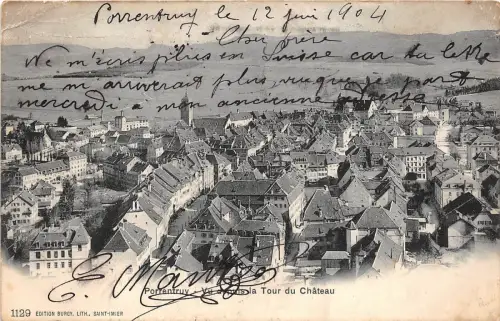 Porrentruy le 12 juin 1904
Cher frère
Ne m'écris plus en Suisse car ta lettre
me m'arriverait plus vu que je part
mercredi à mon ancienne
Porrentruy - Vue depuis la Tour du Château
1129 ÉDITION BURGY, LITH., SAINT-IMIER